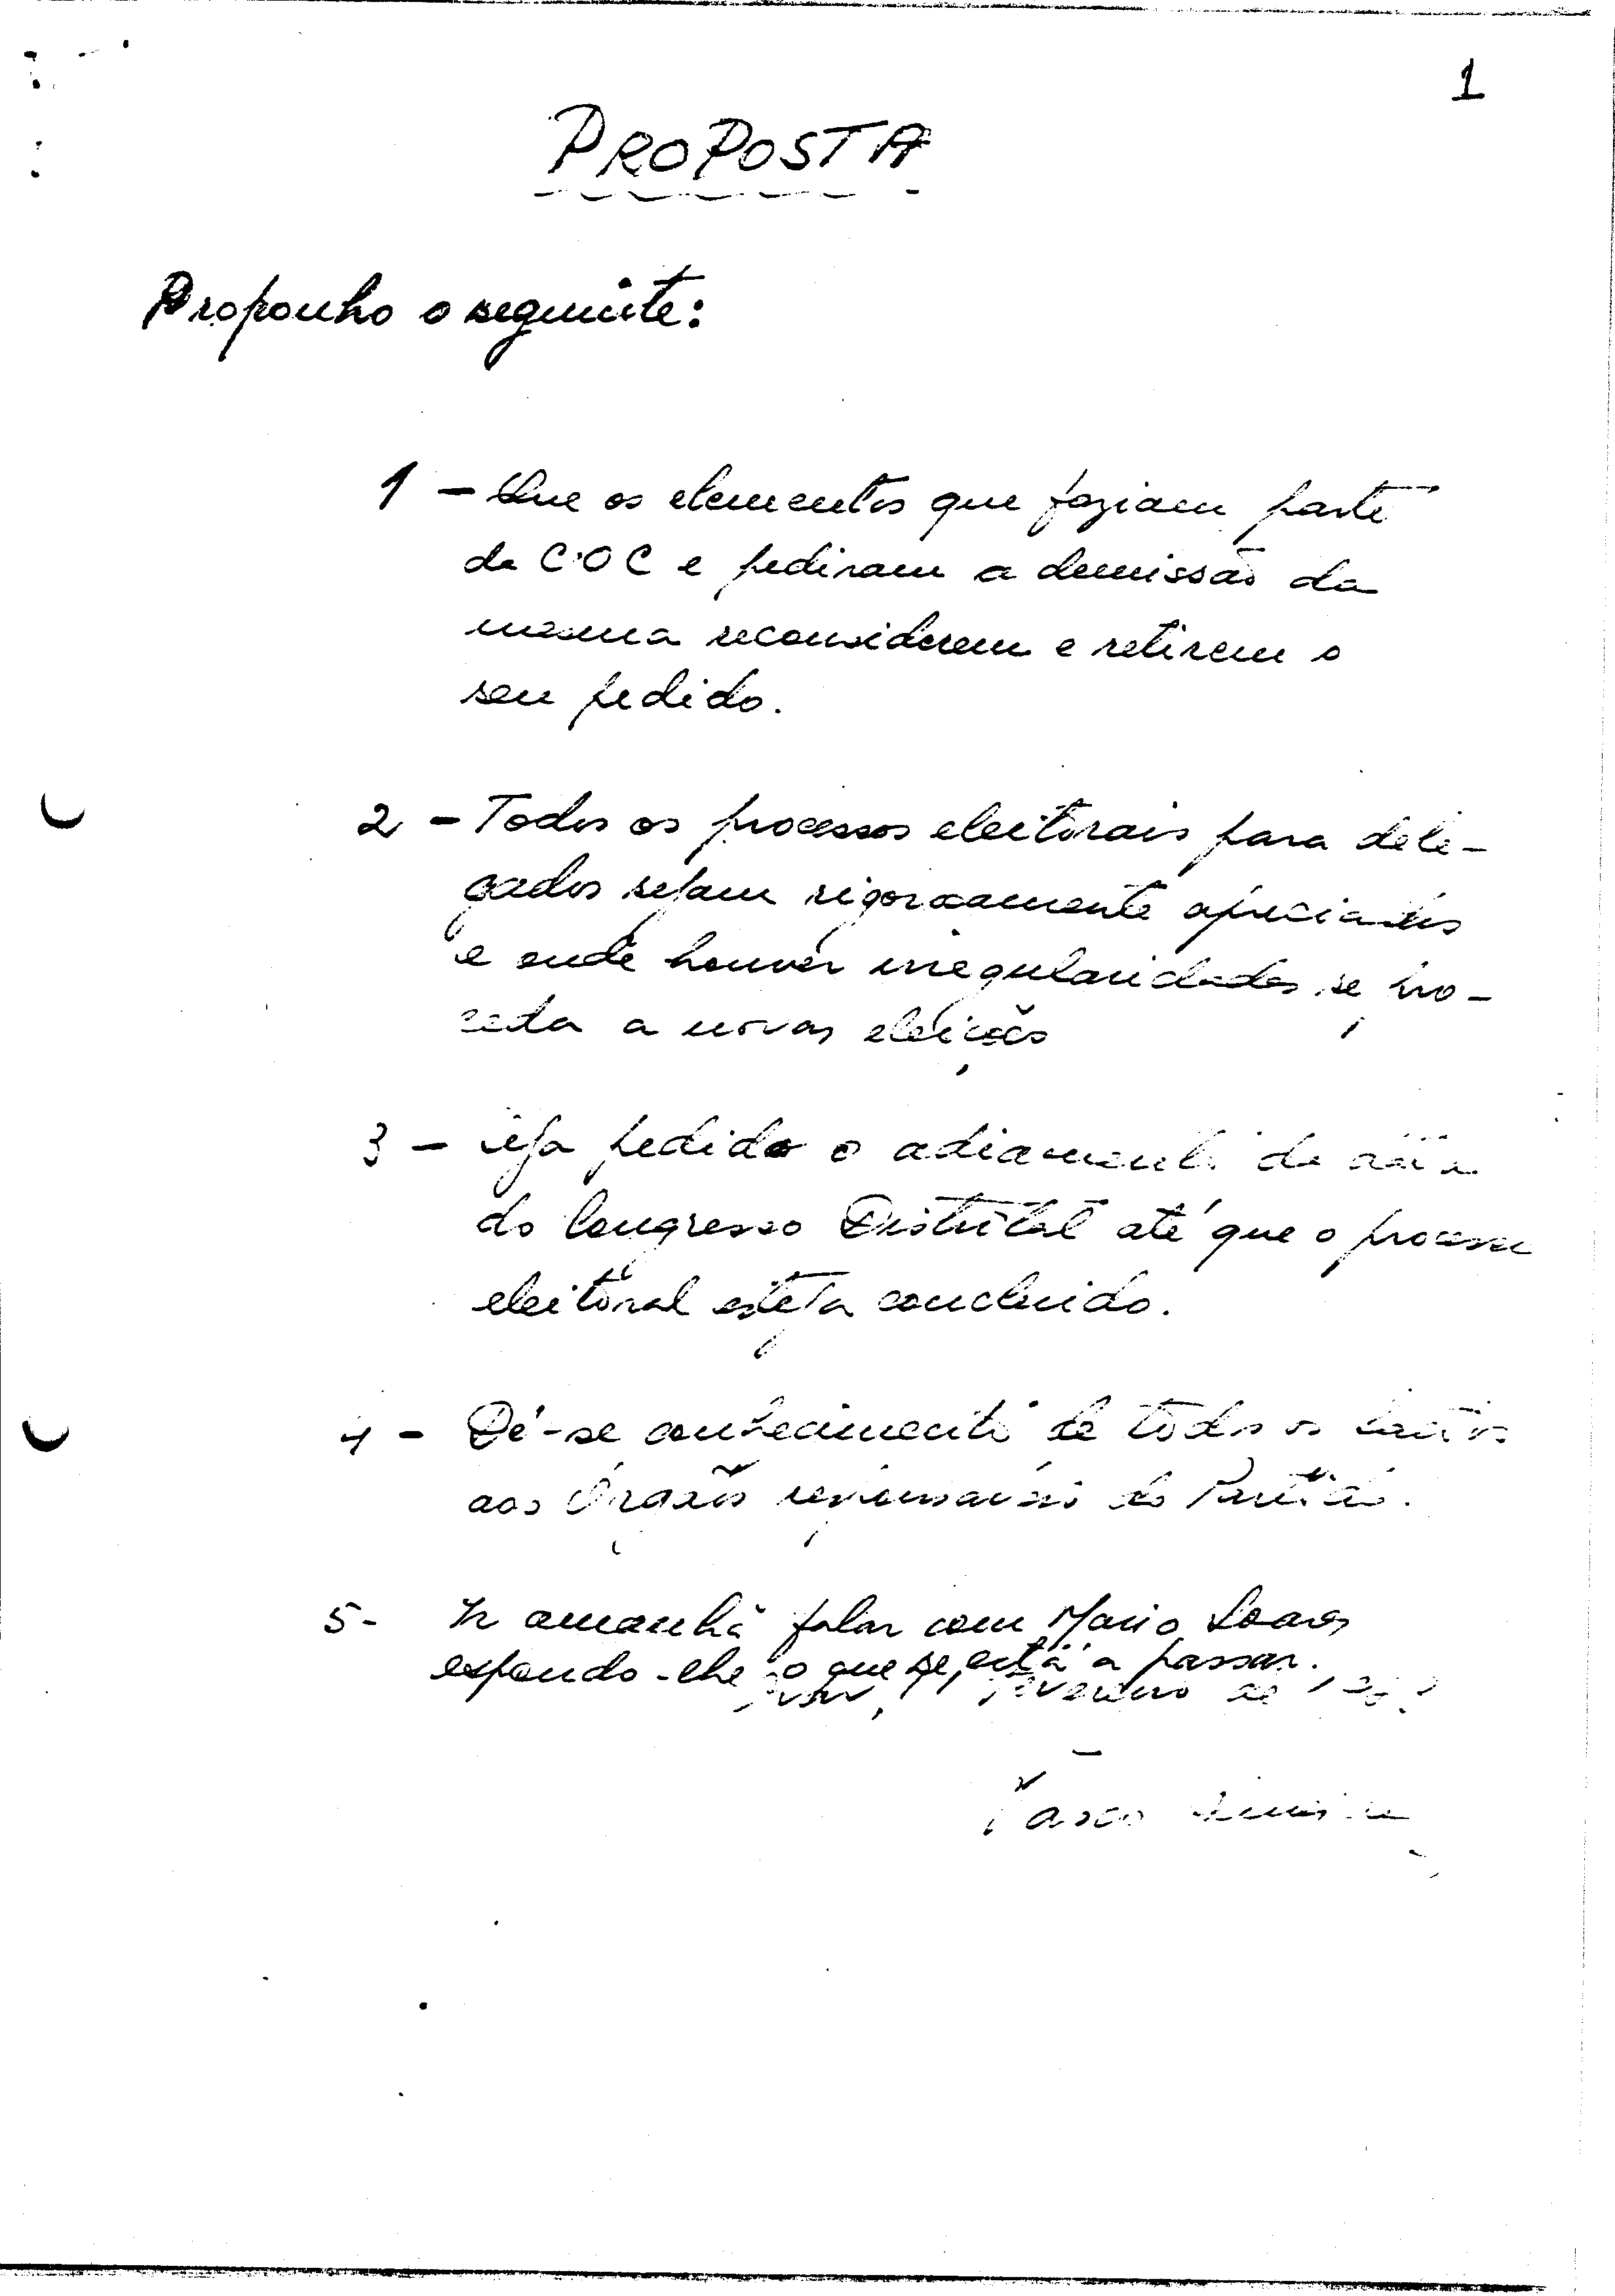 1
PROPOSTA
Proponho o seguinte:
1 - Que os elementos que faziam parte
da COC e pediram a demissão da
mesma reconsiderem e retirem o
seu pedido.
2 - Todos os processos eleitorais para dele-
gados sejam rigorosamente apreciados
e onde houver irregularidades se pro-
ceda a novas eleições
3 - seja pedido o adiamento da data
do Congresso Distrital até que o processo
eleitoral esteja concluido.
4 - Dê-se conhecimento de todos os
aos Órgãos responsáveis do Partido.
5- Ir amanhã falar com Mario Soares
expondo-lhe o que se está a passar.
Fevereiro de
Vasco